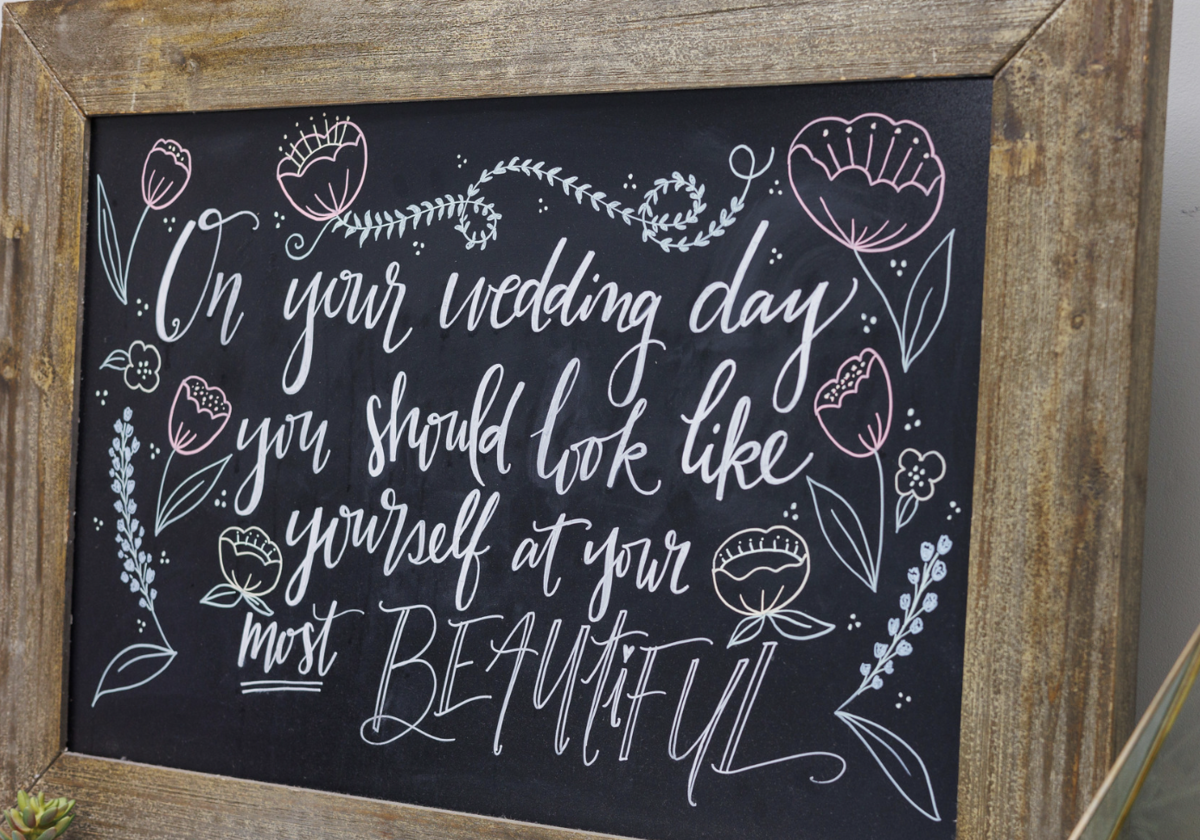 On your wedding day
you should look like
yourself at your
most BEAUtiFUL